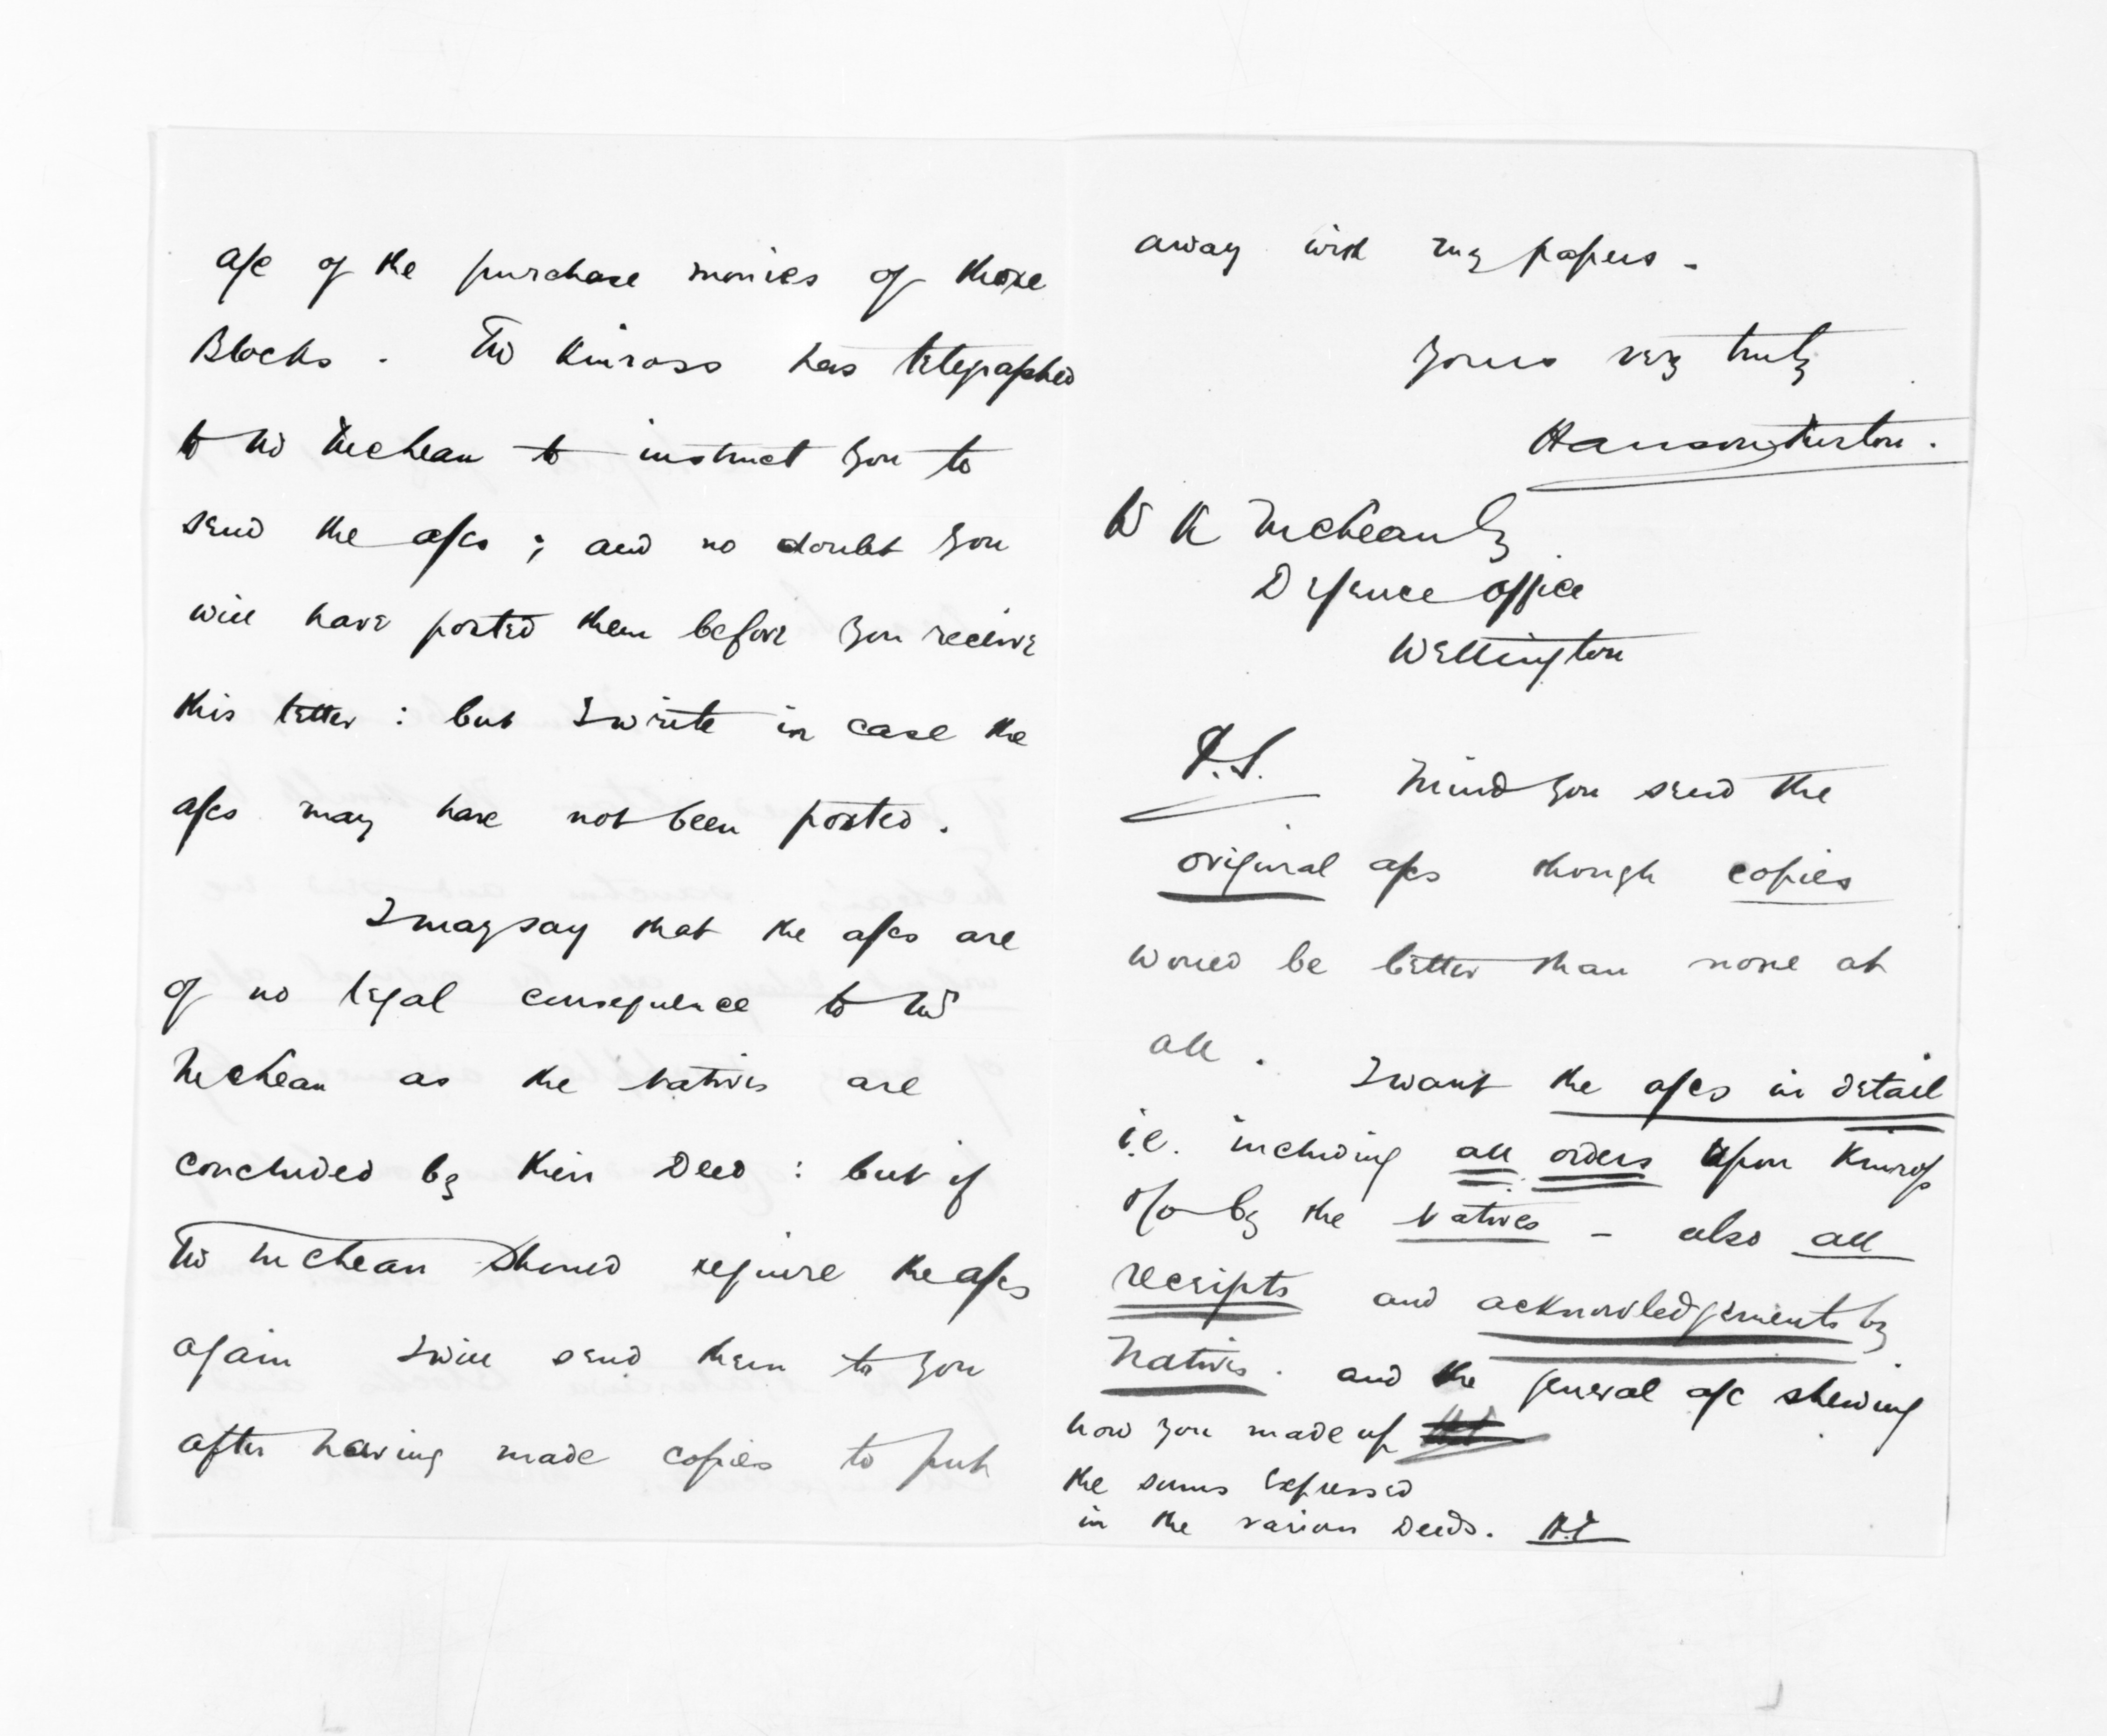 a/c of the purchase monies of those
Blocks. Mr Kinross has telegraphed
to Mr McLean to instruct you to
send the a/cs; and no doubt you
will have posted them before you receive
this letter: but I write in case the
a/cs may have not been posted.
I may say that the a/cs are
of no legal consequence to Mr
McLean as the Natives are
concluded by their Deed: but if
Mr McLean should require the a/cs
again I will send them to you
after having made copies to put
away with my papers.
Yours very truly
Hanson Turton.
W K McLean Esq
Defence Office
Wellington
P.S. Mind you send the
original a/cs though copies
would be better than none at
all. I want the a/cs in detail
i.e. including all orders upon Kinross
&/o by the Natives - also all
receipts and acknowledgements by
Natives. and the general a/c shewing
how you made up
the sums expressed
in the various Deeds. H.T